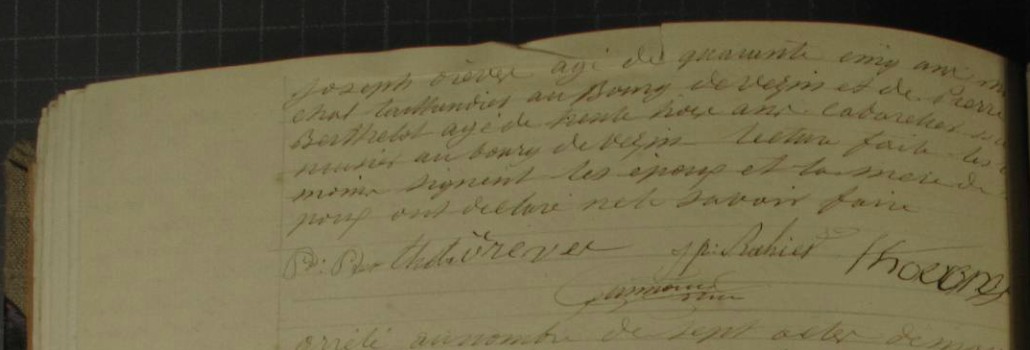 joseph orever agé de quarante cinq ans
chal taillandier au Bourg de vezin et de Pierre
Berthelot agé de trente trois ans cabaretier
au bourg de vezin lecture faite les
moins signent les epoux et la mere de
poux ont declaré ne le savoir faire
P: Berthelot orever jp: Rahier
arrêté au nombre de sept actes